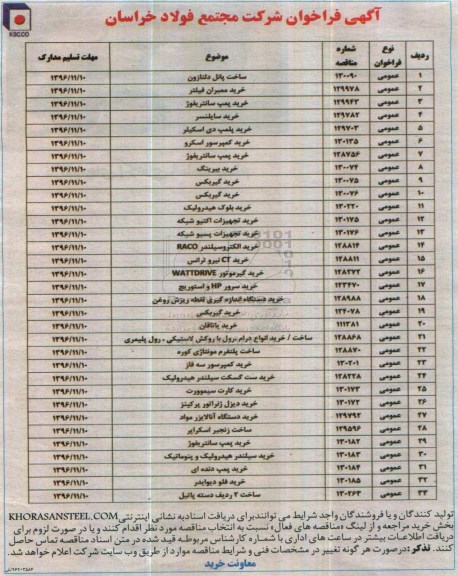 آگهی فراخوان شرکت مجتمع فولاد خراسان
KSC.CO
ردیف نوع فراخوان شماره مناقصه موضوع مهلت تسلیم مدارک
۱ عمومی ۱۳۰۰۹۰ ساخت پانل دلتازون ۱۳۹۶/۱۱/۱۰
۲ عمومی ۱۲۹۹۷۸ خرید ممبران فیلتر ۱۳۹۶/۱۱/۱۰
۳ عمومی ۱۲۹۹۴۳ خرید پمپ سانتریفوژ ۱۳۹۶/۱۱/۱۰
۴ عمومی ۱۲۹۷۸۲ خرید سایلنسر ۱۳۹۶/۱۱/۱۰
۵ عمومی ۱۲۹۷۰۳ خرید پلمپ دی اسکیلر ۱۳۹۶/۱۱/۱۰
۶ عمومی ۱۳۰۱۳۵ خرید کمپرسور اسکرو ۱۳۹۶/۱۱/۱۰
۷ عمومی ۱۲۸۷۵۶ خرید پمپ سانتریفوژ ۱۳۹۶/۱۱/۱۰
۸ عمومی ۱۳۰۰۷۴ خرید بیرینگ ۱۳۹۶/۱۱/۱۰
۹ عمومی ۱۳۰۰۷۵ خرید گیربکس ۱۳۹۶/۱۱/۱۰
۱۰ عمومی ۱۳۰۰۷۶ خرید گیربکس ۱۳۹۶/۱۱/۱۰
۱۱ عمومی ۱۳۰۲۲۰ خرید بلوک هیدرولیک ۱۳۹۶/۱۱/۱۰
۱۲ عمومی ۱۳۰۱۷۵ خرید تجهیزات اکتیو شبکه ۱۳۹۶/۱۱/۱۰
۱۳ عمومی ۱۳۰۱۷۶ خرید تجهیزات پسیو شبکه ۱۳۹۶/۱۱/۱۰
۱۴ عمومی ۱۲۸۸۱۴ خرید الکتروسیلندر RACO ۱۳۹۶/۱۱/۱۰
۱۵ عمومی ۱۲۸۸۱۱ خرید CT نیرو ترانس ۱۳۹۶/۱۱/۱۰
۱۶ عمومی ۱۲۸۲۷۲ خرید گیرموتور WATTDRIVE ۱۳۹۶/۱۱/۱۰
۱۷ عمومی ۱۲۳۴۷۰ خرید سرور HP و استوریج ۱۳۹۶/۱۱/۱۰
۱۸ عمومی ۱۲۸۹۸۸ خرید دستگاه اندازه گیری نقطه ریزش روغن ۱۳۹۶/۱۱/۱۰
۱۹ عمومی ۱۲۴۰۷۸ خرید گیربکس ۱۳۹۶/۱۱/۱۰
۲۰ عمومی ۱۱۱۳۸۱ خرید یاتاقان ۱۳۹۶/۱۱/۱۰
۲۱ عمومی ۱۲۸۸۶۸ ساخت / خرید انواع درام ،رول با روکش لاستیکی ، رول پلیمری ۱۳۹۶/۱۱/۱۰
۲۲ عمومی ۱۲۸۸۷۰ ساخت پلتفرم مونتاژی کوره ۱۳۹۶/۱۱/۱۰
۲۳ عمومی ۱۳۰۲۰۱ خرید کمپرسور سه فاز ۱۳۹۶/۱۱/۱۰
۲۴ عمومی ۱۲۸۲۲۸ خرید ست گسکت سیلندر هیدرولیک ۱۳۹۶/۱۱/۱۰
۲۵ عمومی ۱۳۰۱۷۳ خرید کارت سیموورت ۱۳۹۶/۱۱/۱۰
۲۶ عمومی ۱۳۰۱۷۲ خرید دیزل ژنراتور پرکینز ۱۳۹۶/۱۱/۱۰
۲۷ عمومی ۱۲۹۷۹۲ خرید دستگاه آنالایزر مواد ۱۳۹۶/۱۱/۱۰
۲۸ عمومی ۱۲۹۵۹۶ ساخت زنجیر اسکراپر ۱۳۹۶/۱۱/۱۰
۲۹ عمومی ۱۳۰۱۸۲ خرید پمپ سانتریفوژ ۱۳۹۶/۱۱/۱۰
۳۰ عمومی ۱۳۰۱۸۳ خرید سیلندر هیدرولیک و پنوماتیک ۱۳۹۶/۱۱/۱۰
۳۱ عمومی ۱۳۰۱۸۴ خرید پمپ دنده ای ۱۳۹۶/۱۱/۱۰
۳۲ عمومی ۱۳۰۱۸۵ خرید فلو دیوایدر ۱۳۹۶/۱۱/۱۰
۳۳ عمومی ۱۳۰۲۶۳ ساخت ۲ ردیف دسته پاتیل ۱۳۹۶/۱۱/۱۰
تولید کنندگان و یا فروشندگان واجد شرایط می توانند برای دریافت اسناد به نشانی اینترنتی KHORASANSTEEL.COM
بخش خرید مراجعه و از لینک «مناقصه های فعال» نسبت به انتخاب مناقصه مورد نظر اقدام کنند و یا در صورت لزوم برای
دریافت اطلاعات بیشتر در ساعت های اداری با شماره کارشناس مربوطه قید شده در متن اسناد مناقصه تماس حاصل
کنند. تذکر: در صورت هر گونه تغییر در مشخصات فنی و شرایط مناقصه موارد از طریق وب سایت شرکت اعلام خواهد شد.
معاونت خرید